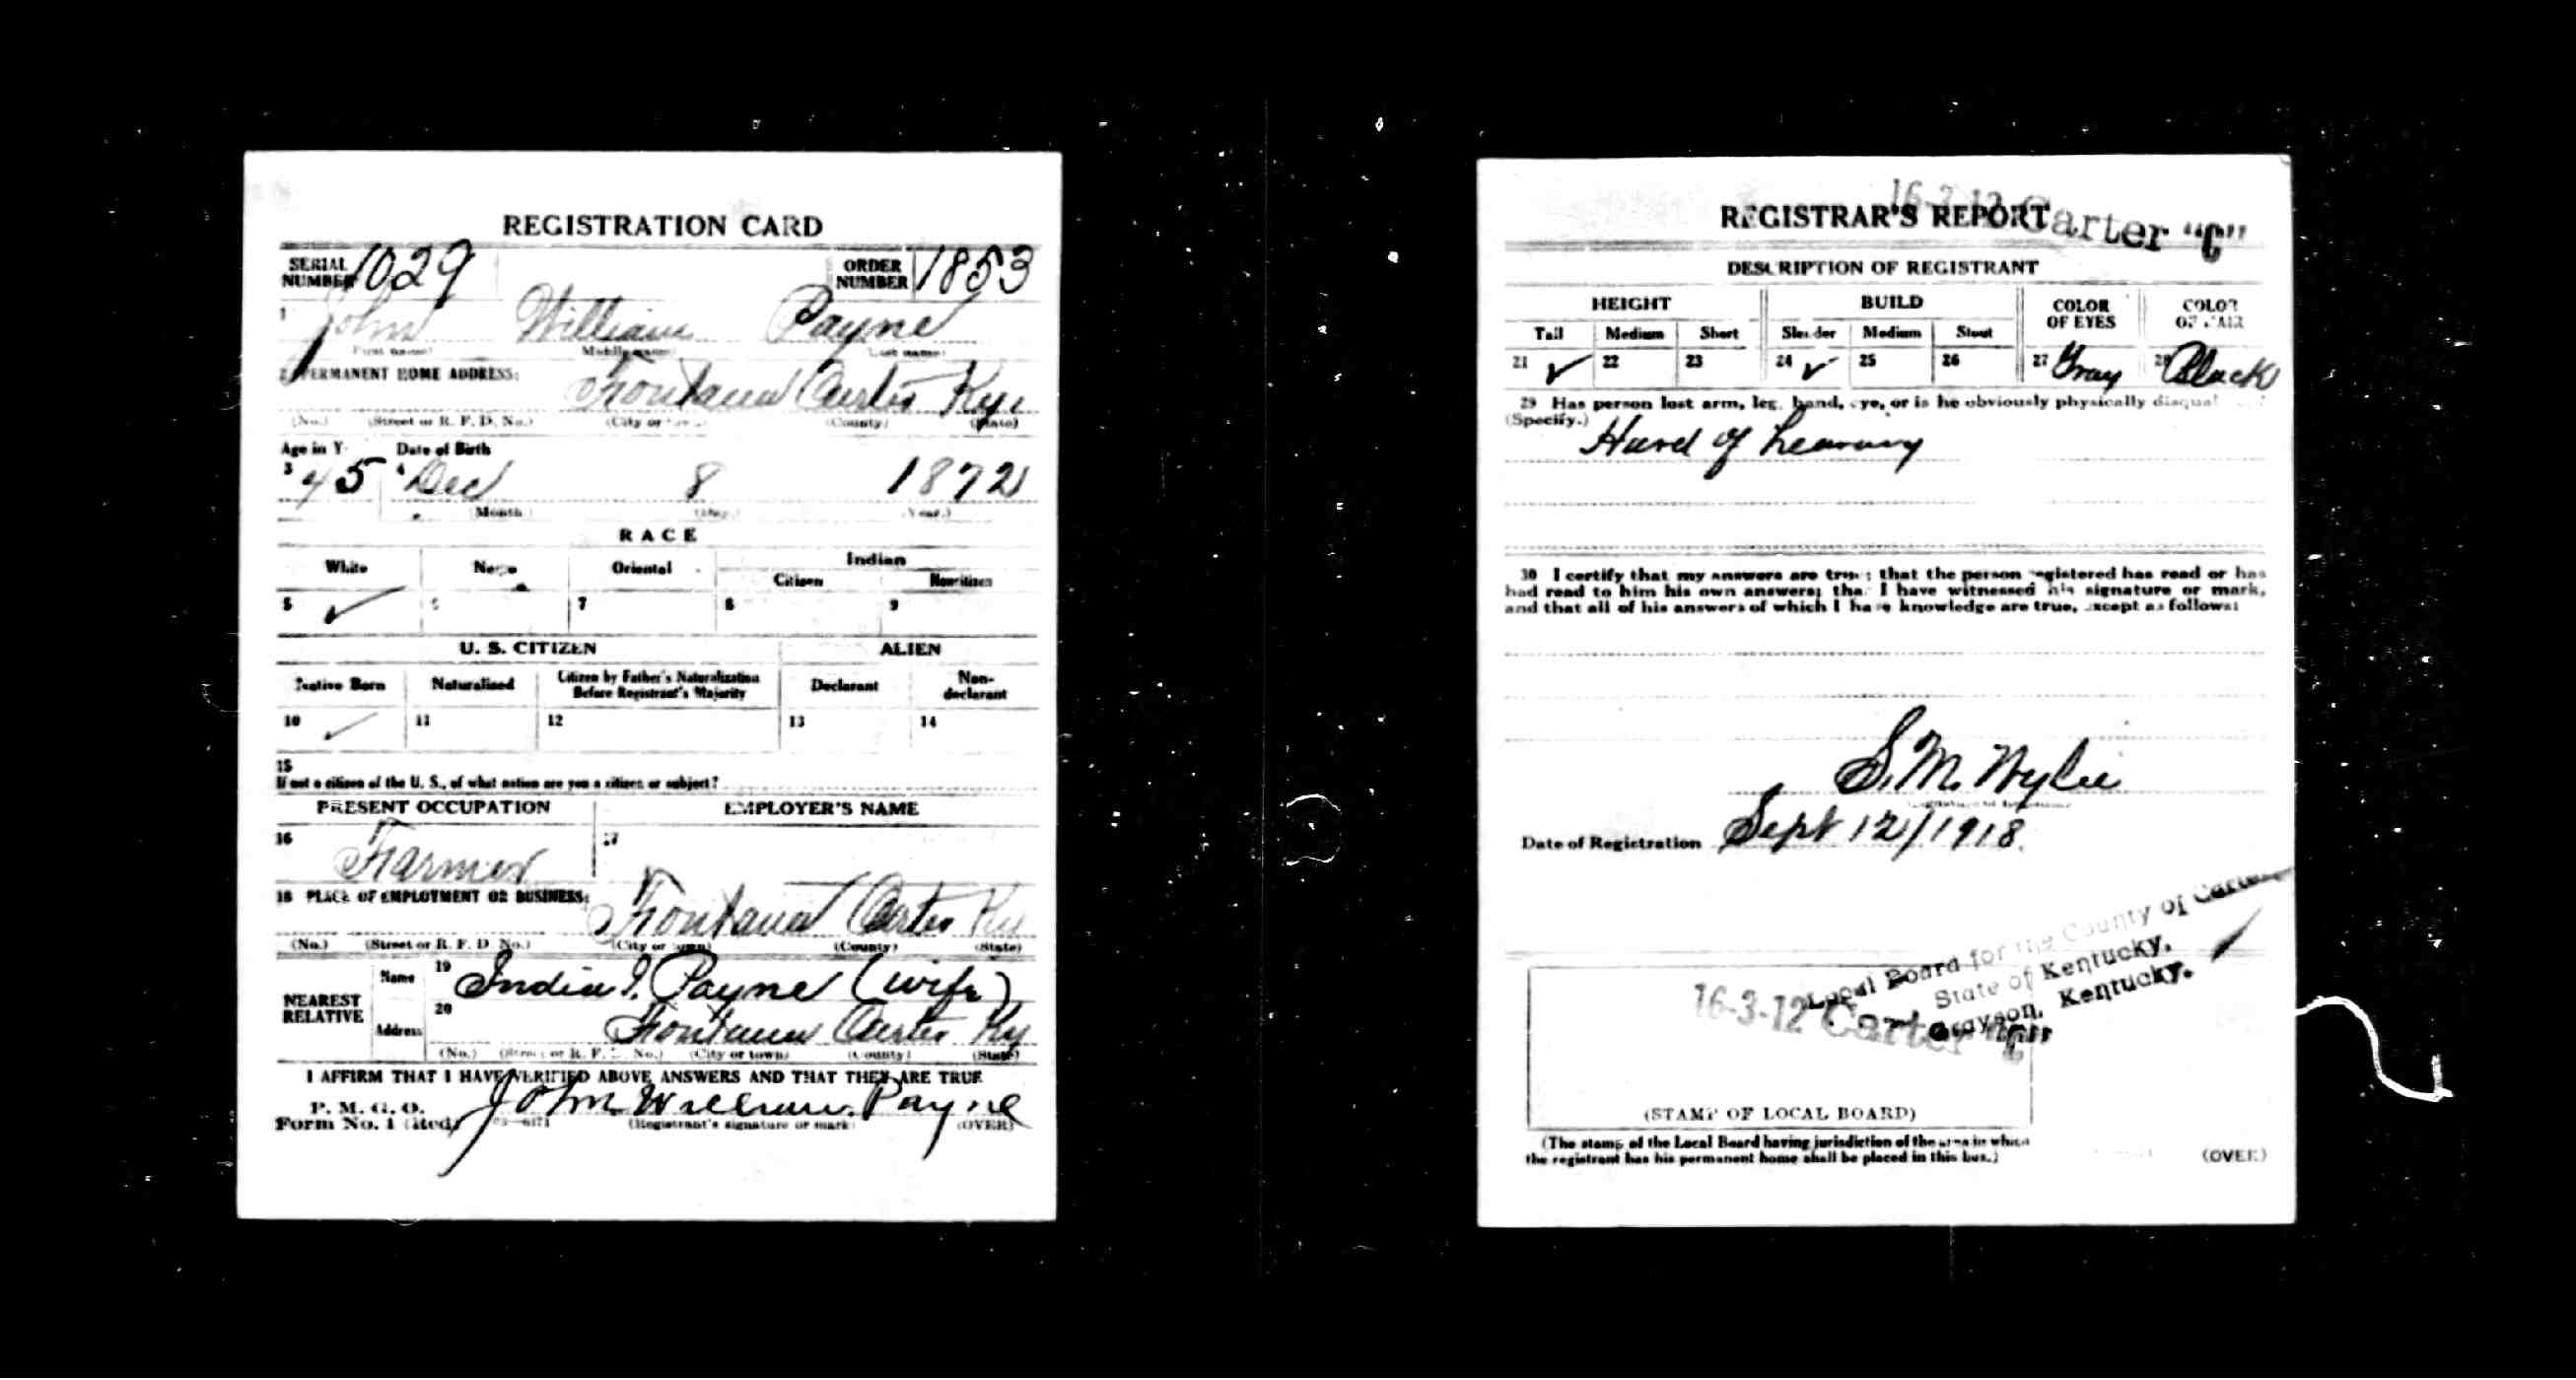 REGISTRATION CARD
SERIAL NUMBER 1029 ORDER NUMBER 1853
1 John William Payne
(First name) (Middle name) (Last name)
2 PERMANENT HOME ADDRESS: Fontana Carter Ky.
(No.) (Street or R. F. D. No.) (City or town) (County) (State)
Age in Y Date of Birth
3 45 4 Dec 8 1872
(Month.) (Day.) (Year.)
RACE
White Negro Oriental Indian
Citizen Noncitizen
5 ✓ 6 7 8 9
U. S. CITIZEN ALIEN
Native Born Naturalized Citizen by Father's Naturalization Before Registrant's Majority Declarant Non-declarant
10 ✓ 11 12 13 14
15
If not a citizen of the U. S., of what nation are you a citizen or subject?
PRESENT OCCUPATION EMPLOYER'S NAME
16 Farmer 17
18 PLACE OF EMPLOYMENT OR BUSINESS: Fontana Carter Ky
(No.) (Street or R. F. D. No.) (City or town) (County) (State)
NEAREST RELATIVE Name 19 India I. Payne (wife)
Address 20 Fontana Carter Ky
(No.) (Street or R. F. D. No.) (City or town) (County) (State)
I AFFIRM THAT I HAVE VERIFIED ABOVE ANSWERS AND THAT THEY ARE TRUE
P. M. G. O.
Form No. 1 (Red) John William Payne
(Registrant's signature or mark) (OVER)
16-3-12 Carter "C"
REGISTRAR'S REPORT
DESCRIPTION OF REGISTRANT
HEIGHT BUILD COLOR OF EYES COLOR OF HAIR
Tall Medium Short Slender Medium Stout
21 ✓ 22 23 24 ✓ 25 26 27 Gray 28 Black
29 Has person lost arm, leg, hand, eye, or is he obviously physically disqualified?
(Specify.) Hard of hearing
30 I certify that my answers are true; that the person registered has read or has
had read to him his own answers; that I have witnessed his signature or mark,
and that all of his answers of which I have knowledge are true, except as follows:
S. M. Wylie
Date of Registration Sept 12/1918.
Local Board for the County of Carter,
State of Kentucky,
Grayson, Kentucky.
16-3-12 Carter "C"
(STAMP OF LOCAL BOARD)
(The stamp of the Local Board having jurisdiction of the area in which
the registrant has his permanent home shall be placed in this box.)
(OVER)